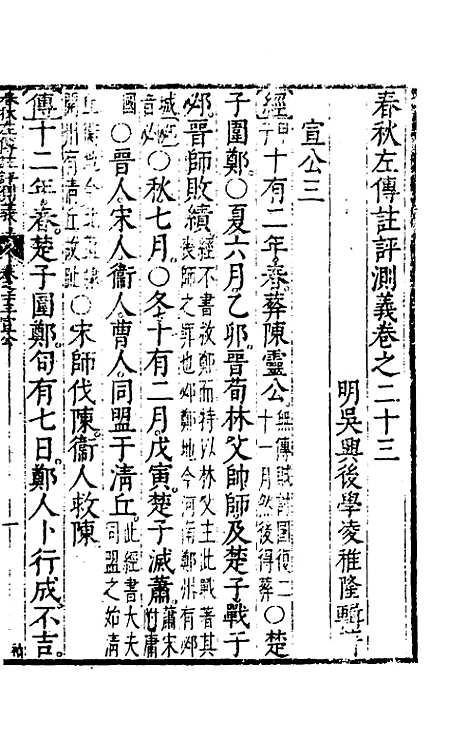 春秋左傳註評測義卷之二十三
明吳興後學凌稚隆輯
宣公三
經甲子十有二年春葬陳靈公無傳賊討國復二十一月然後得葬○楚
子圍鄭○夏六月乙卯晉荀林父帥師及楚子戰于
邲晉師敗績經不書救鄭而特以林父主此戰著喪師之罪也邲鄭地今河南鄭州有邲
城○秋七月○冬十有二月戊寅楚子滅蕭蕭宋附庸
國○晉人宋人衞人曹人同盟于清丘此經書大夫同盟之始清
丘衞地今有清丘故址○宋師伐陳衞人救陳
傳十二年春楚子圍鄭旬有七日鄭人卜行成不吉